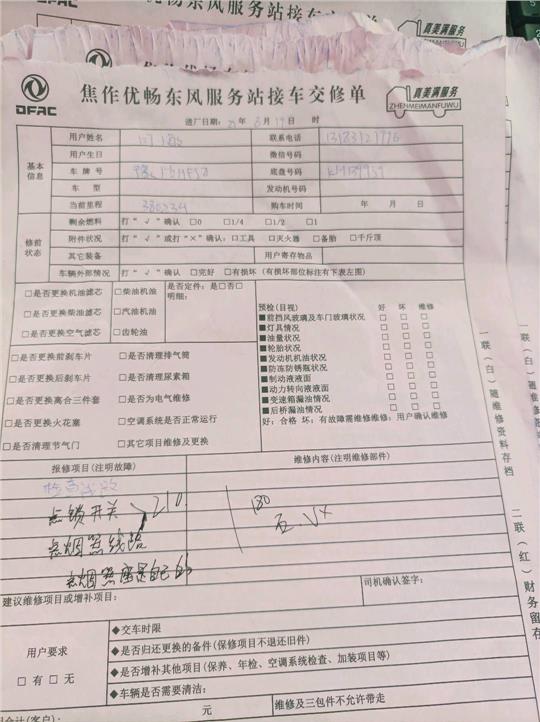 DFAC
焦作优畅东风服务站接车交修单
真美满服务
ZHENMEIMANFUWU
进厂日期: 年 8月17日 时
基本信息
用户姓名
联系电话
用户生日
微信号码
车 牌 号
底盘号码
车 型
发动机号码
当前里程
购车时间
年 月 日
修前状态
剩余燃料
打“√”确认 □0 □1/4 □1/2 □1
附件状况
打“√”或打“×”确认: □工具 □灭火器 □备胎 □千斤顶
其它装备
用户寄存物品
车辆外部情况
打“√”确认 □完好 □有损坏 (有损坏部位标注有下表左图)
□是否更换机油滤芯
□柴油机油
是否定件: 是□否□
明细:
□是否更换柴油滤芯
□汽油机油
□是否更换空气滤芯
□齿轮油
预检(目视) 好 坏 维修
■前挡风玻璃及车门玻璃状况 □ □ □
■灯具情况 □ □ □
■油量状况 □ □ □
■轮胎状况 □ □ □
■发动机机油状况 □ □ □
■防冻防锈瓶状况 □ □ □
■制动液液面 □ □ □
■动力转向液液面 □ □ □
■变速箱漏油情况 □ □ □
■后桥漏油情况 □ □ □
好: 合格 坏: 有故障需维修维修: 用户确认维修
□是否更换前刹车片
□是否清理排气筒
□是否更换后刹车片
□是否清理尿素箱
□是否更换离合三件套
□是否为电气维修
□是否更换火花塞
□空调系统是否正常运行
□是否清理节气门
□其它项目维修及更换
报修项目(注明故障)
维修内容(注明维修部件)
检查线路
点锁开关
210.
180
点烟器线路
点烟器座是自己的
建议维修项目或增补项目:
司机确认签字:
用户要求
□ 有 □ 无
◆交车时限
◆是否归还更换的备件(保修项目不退还旧件)
◆是否增补其他项目(保养、年检、空调系统检查、加装项目等)
◆车辆是否需要清洁:
元
维修及三包件不允许带走
合计(客户):
一联(白)随维修资料存档
二联(红)财务留存